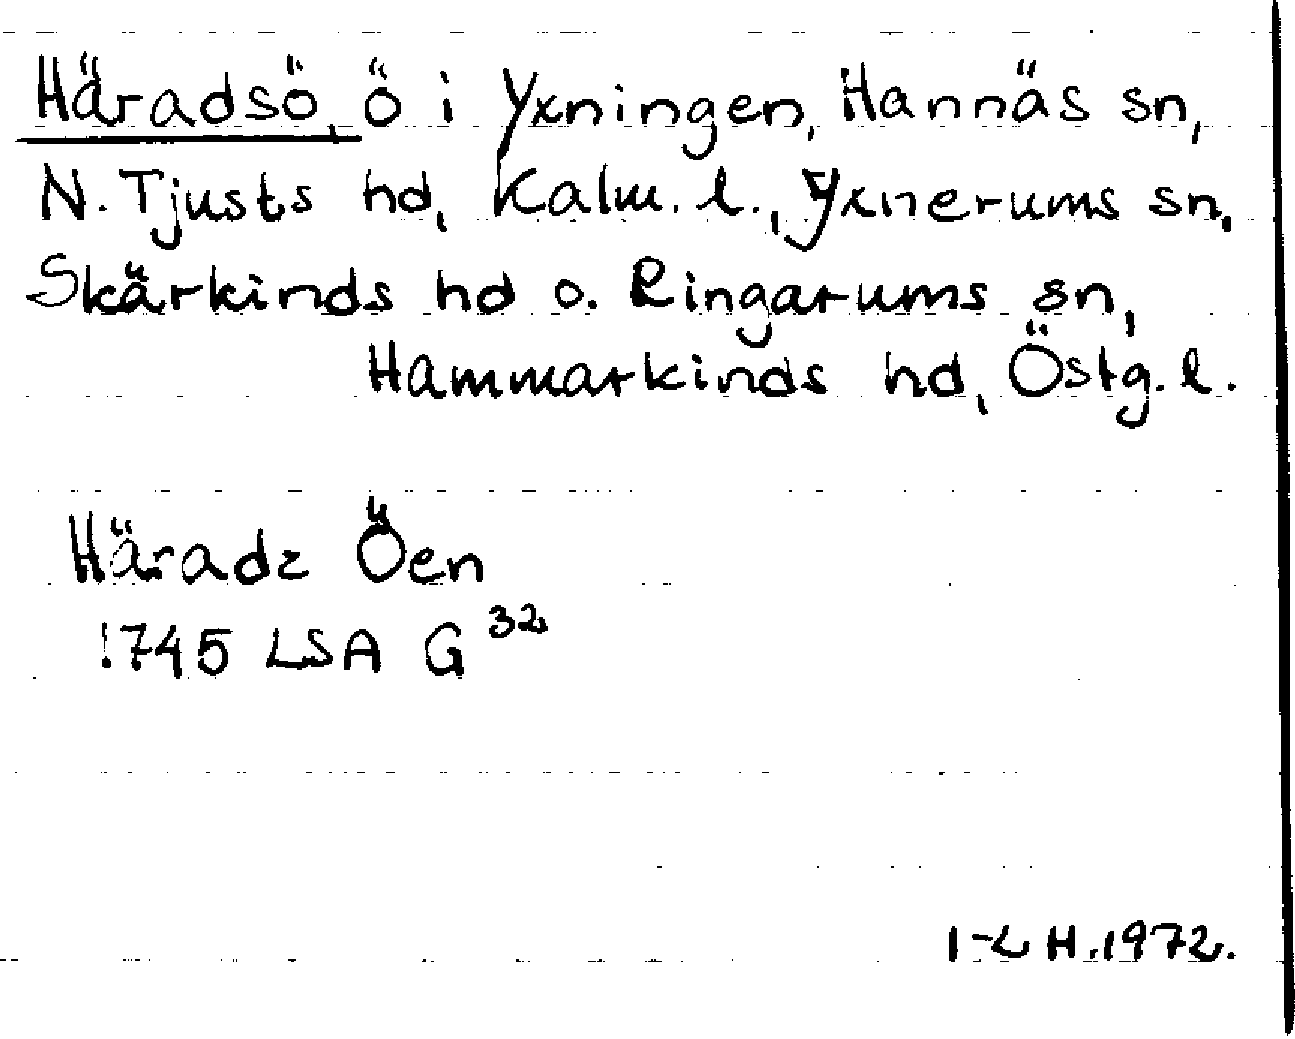 Häradsö, ö i Yxningen, Hannäs sn,
N. Tjusts hd, Kalm. l., Yxnerums sn,
Skärkinds hd o. Ringarums sn,
Hammarkinds hd, Östg. l.
Häradz Öen
1745 LSA G 32
I-L H. 1972.